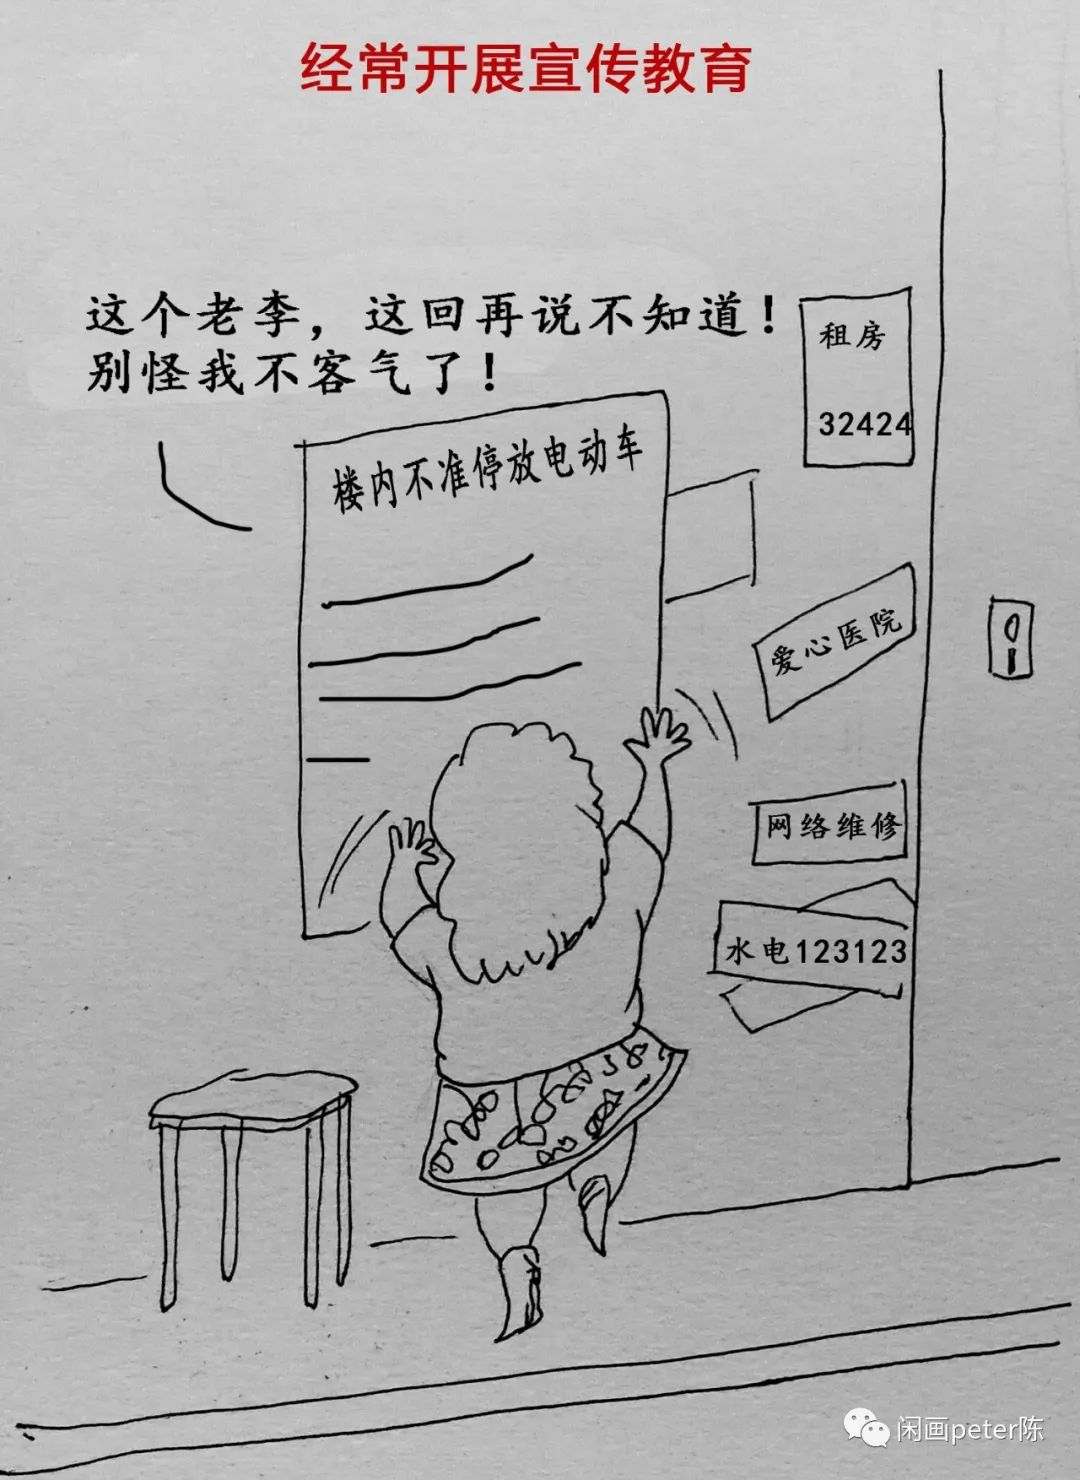 经常开展宣传教育
这个老李，这回再说不知道！
别怪我不客气了！
楼内不准停放电动车
租房
32424
爱心医院
网络维修
水电123123
闲画peter陈